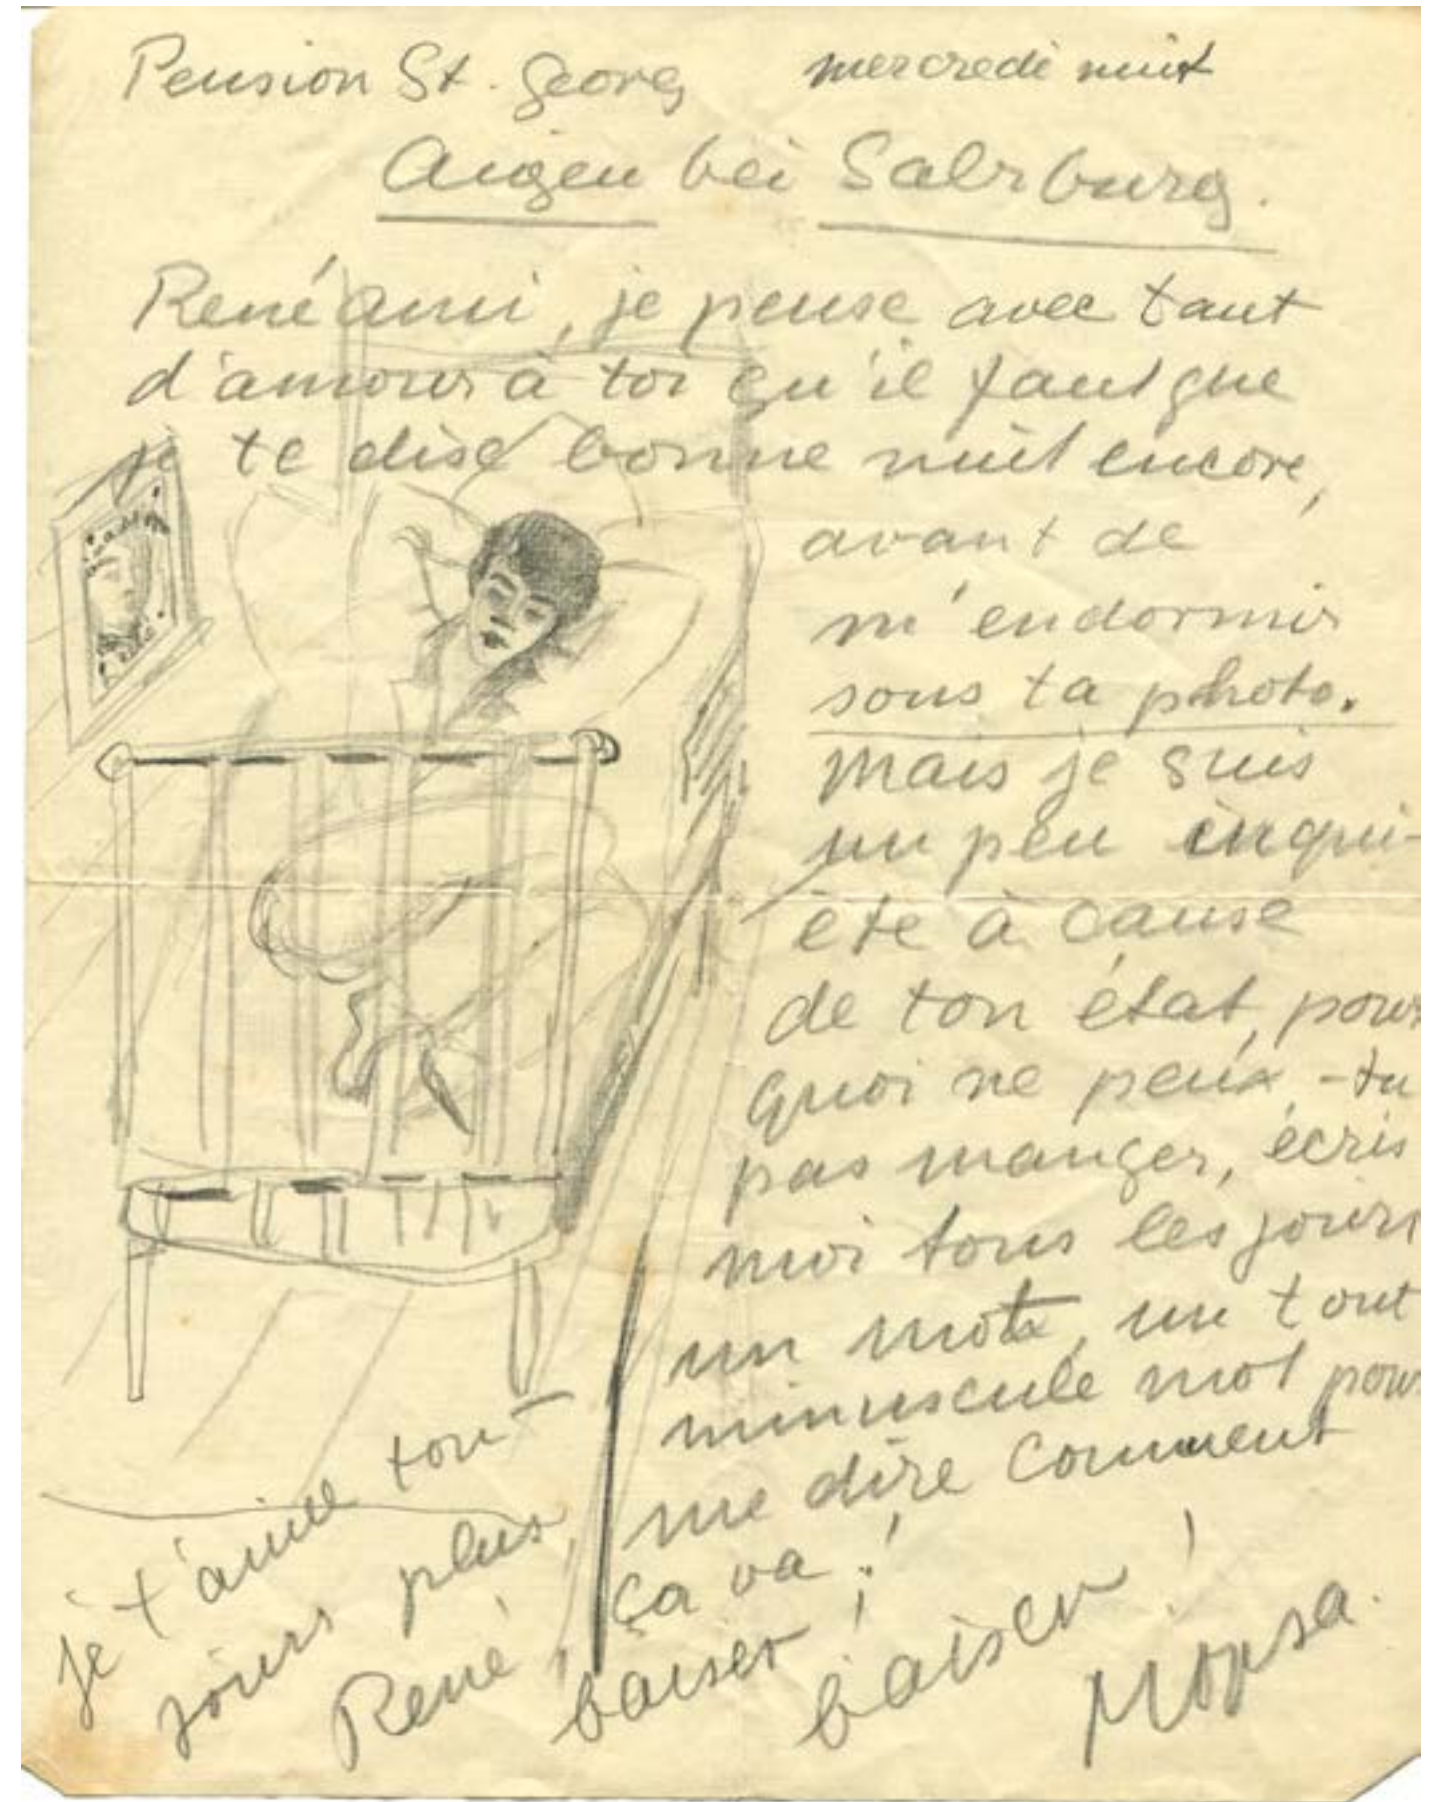 Pension St. Georg
mercredi nuit
Aigen bei Salzburg.
René ami, je pense avec tant
d'amour à toi qu'il faut que
je te dise bonne nuit encore,
avant de
m'endormir
sous ta photo.
mais je suis
un peu inqui-
ète à cause
de ton état, pour
quoi ne peux-tu
pas manger, écris
moi tous les jours
un mot, un tout
minuscule mot pour
me dire comment
ça va !
je t'aime tou-
jours plus,
René !
baiser !
baiser !
Mopsa.